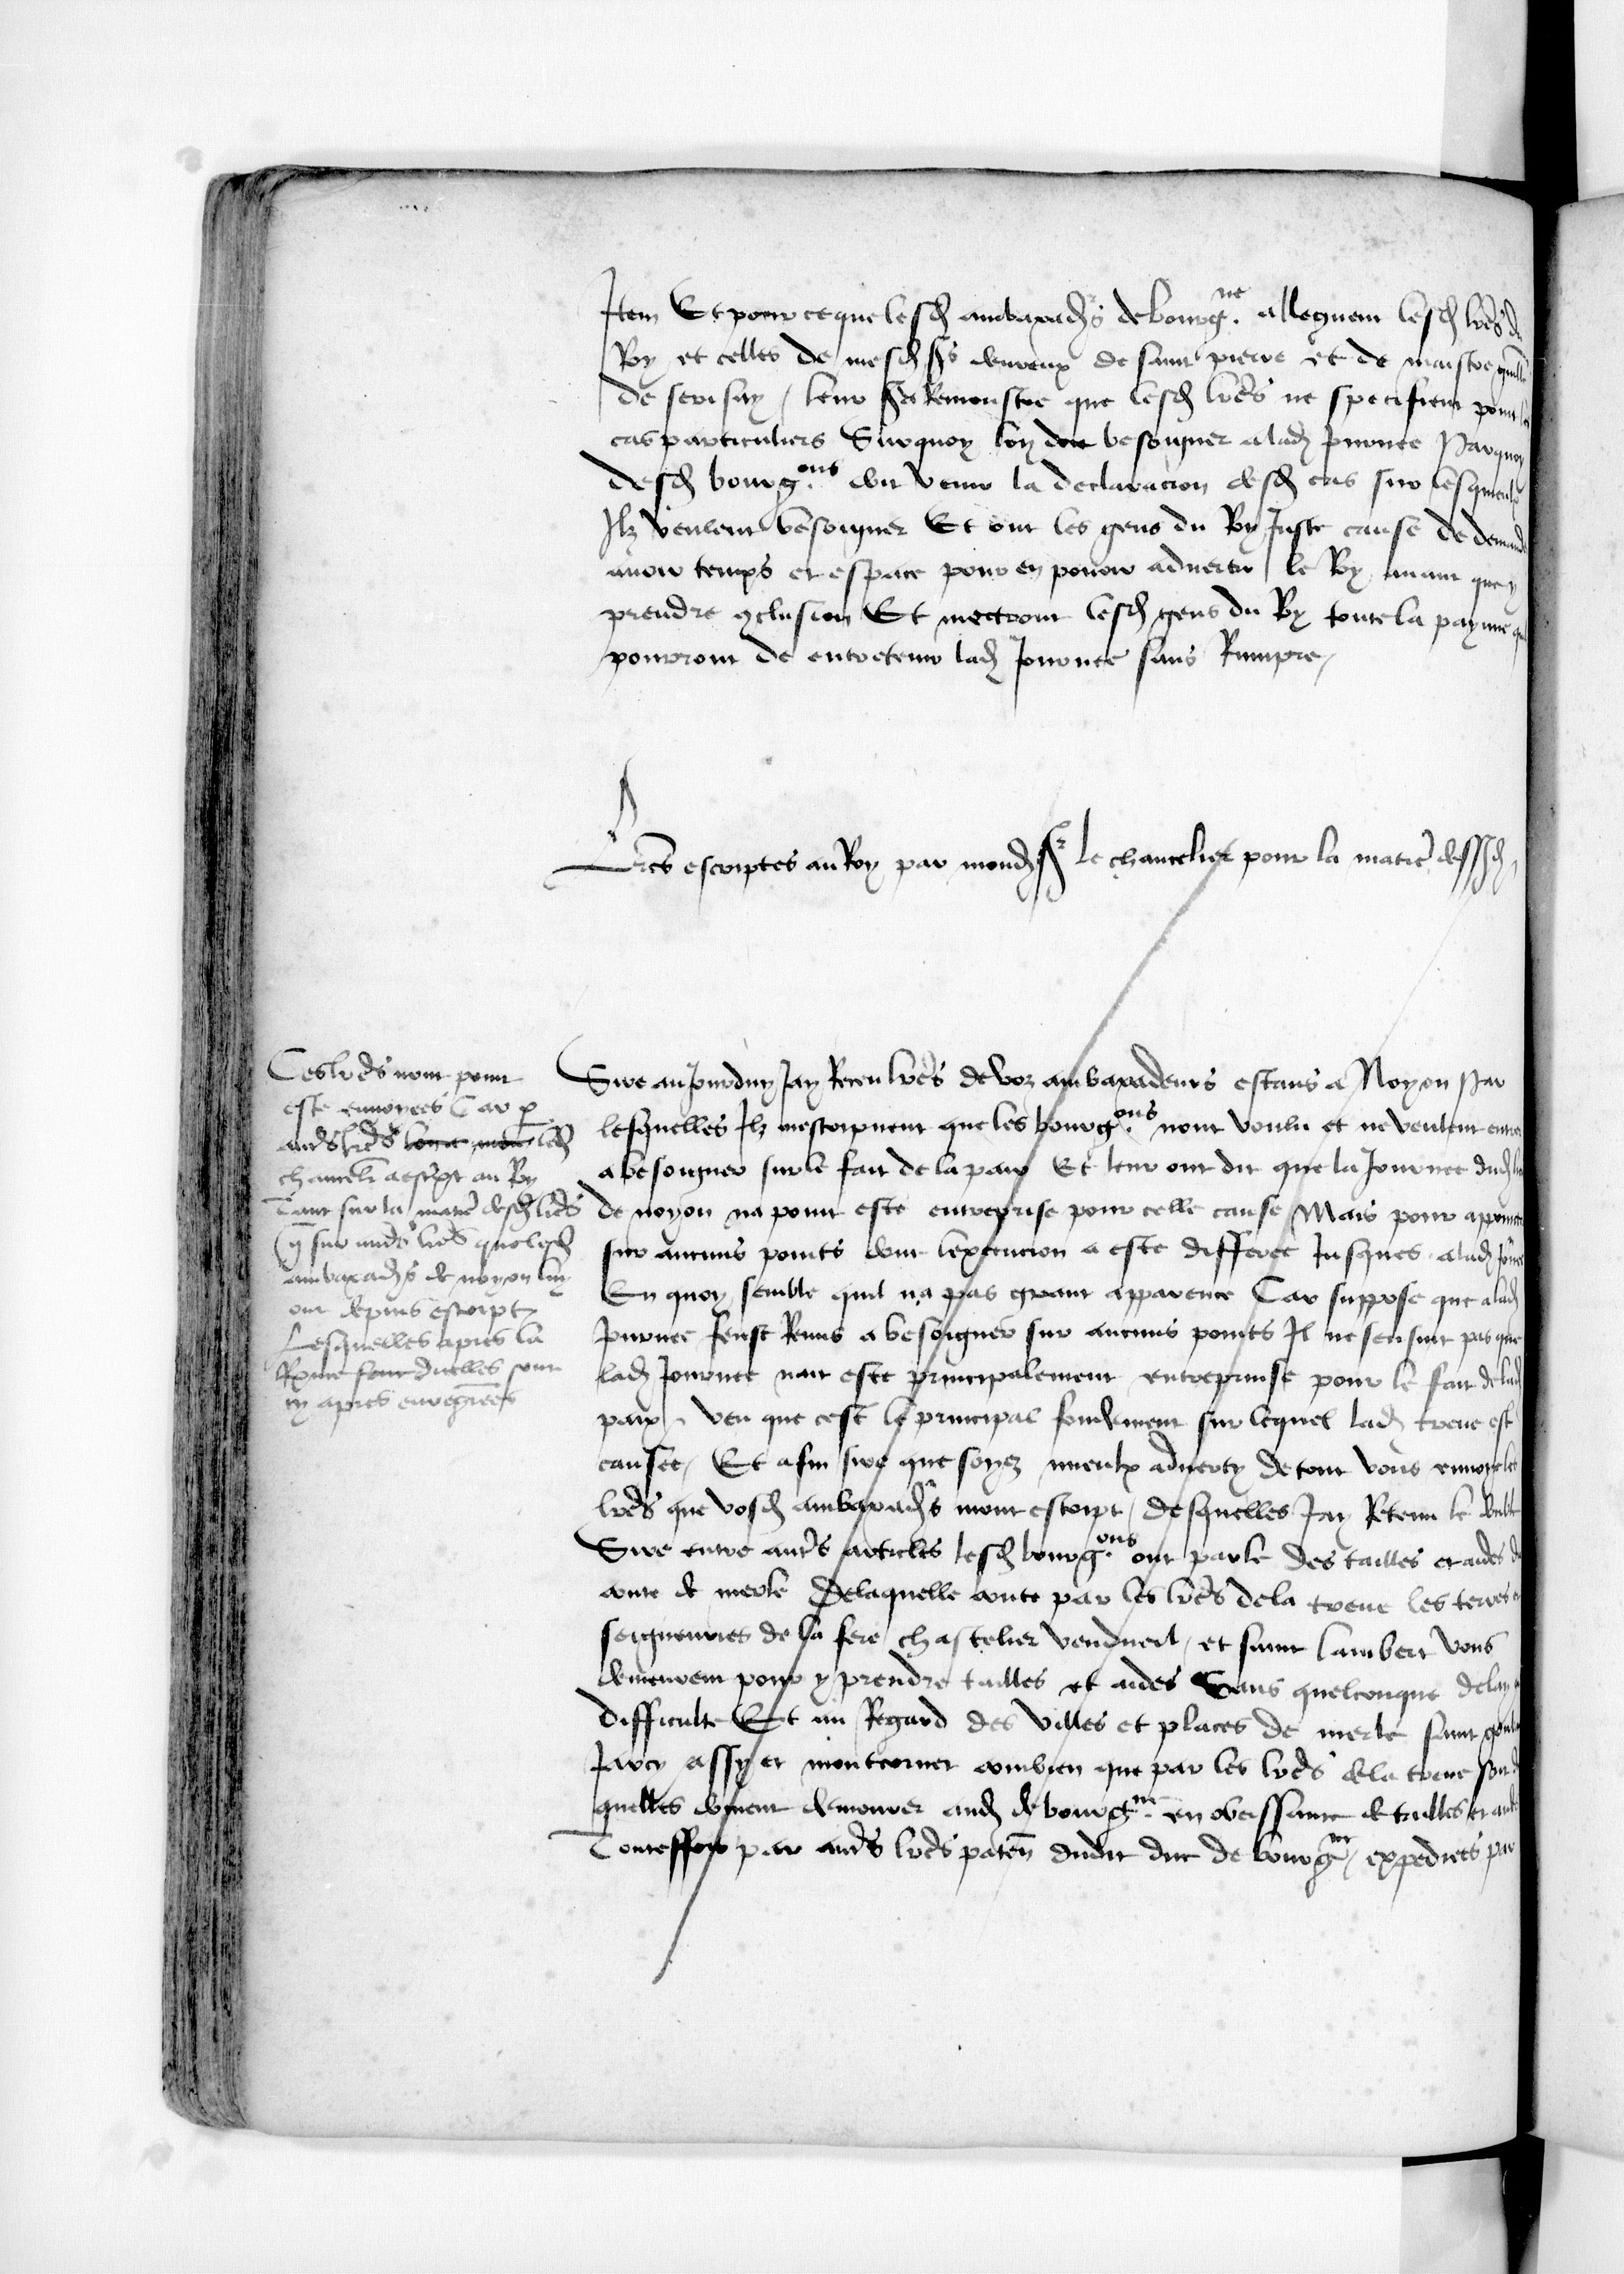 Item Et pource que lesd ambaxads de bourgne alleguent lesd lres du
Roy et celles de mesd srs deureux de saint pierre et de maistre guille
de serisay / leur sera Remonstre que lesd lres ne specifient point les
cas particuliers Surquoy lon doit besongner a lad Journee Parquoy
desd bourgons doit venir la declaracion desd cas sur lesquelz
Ilz veulent besongner Et ont les gens du Roy Juste cause de demander
auoir temps et espace pour en pouoir aduertir le Roy auant que y
prendre conclusion Et mectront lesd gens du Roy toute la payne quilz
pourront de entretenir lad Journee sans Rompre /
Lres escriptes au Roy par mond sr le chancelier pour la matie dessusd
Ces lres nont point
este enuoyees Car par
autres lres led
chancelr a escript au Roy
Tant sur la matie desd lres
que sur autres lres que lesd
ambaxads de noyon luy
ont depuis escript
Lesquelles apres la
Rponse sur icelles sont
cy apres enregrees
Sire auJourduy Jay Receu lres de voz ambaxadeurs estans a Noyon Par
lesquelles Ilz mescripuent que les bourgons nont voulu et ne veulent entrer
a besongner sur le fait de la paix Et leur ont dit que la Journee dud lieu
de noyon na point este entreprise pour celle cause Mais pour appoincter
sur aucuns points dont lexecucion a este differee Jusques a lad Jornee
En quoy semble quil na pas grant apparence Car suppose que a lad
Journee feust Remis a besongner sur aucuns points Il ne sensuit pas que
lad Journee nait este principalement entreprinse pour le fait de lad
paix / veu que cest le principal fondement sur lequel lad treue est
causee / Et afin sire que soyez mieulx aduerty de tout vous enuoye les
lres que vosd ambaxads mont escript / desquelles Jay Retenu le double
Sire entre autres articles lesd bourgons ont parle des tailles et aides du
conte de merle Delaquelle conte par les lres de la treue les terres et
seigneuries de la fere chastelier vendueil / et saint lambert vous
demeurent pour y prendre tailles et aides Sans quelconque delay ou
difficulte Et au Regard des villes et places de merle saint goubain
Jarcy assy et montcornet combien que par les lres de la treue soit dit
quelles doiuent demourer aud de bourgne en obeissance de tailles et aides
Touteffois par autres lres patens dudit duc de bourgne / expediees par